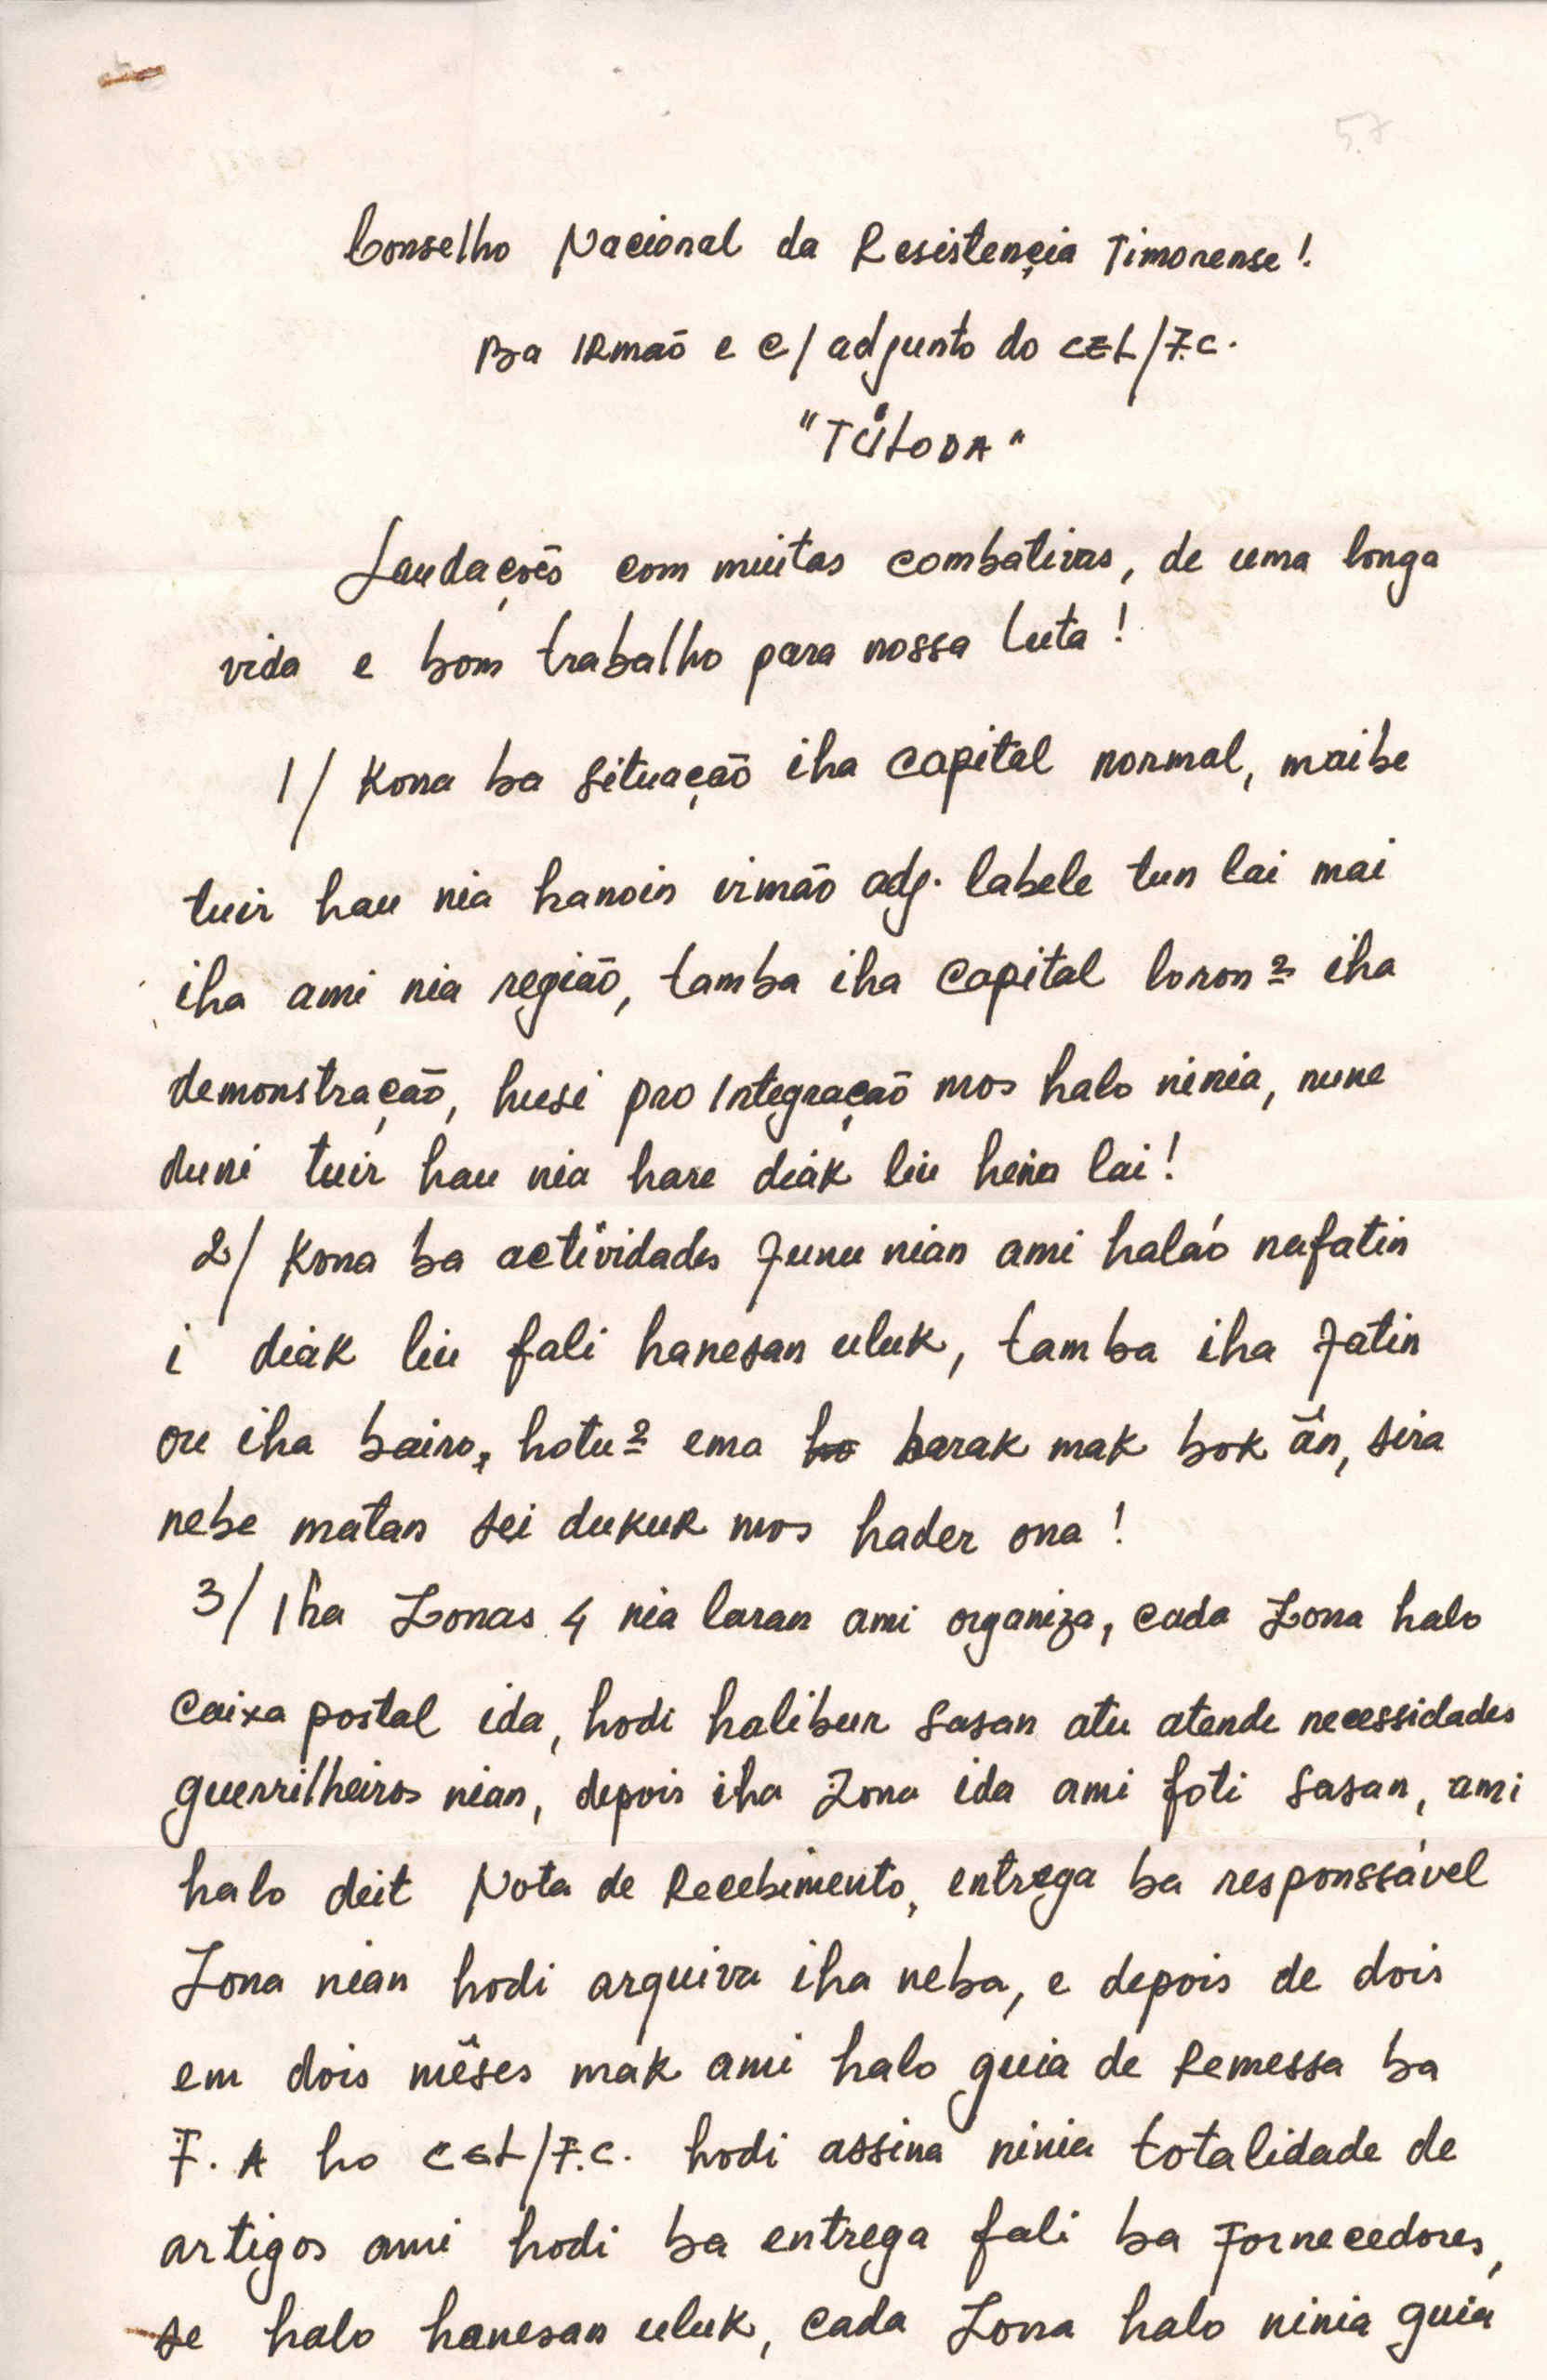 57
Conselho Nacional da Resistençia Timorense!
Ba IRmaõ e c/ adjunto do CEL/F.C.
"TÚLODA"
Saudaçoẽs com muitas combativas, de uma longa
vida e bom trabalho para nossa luta!
1/ Kona ba situaçaõ iha capital normal, maibe
tuir hau nia hanoin irmão adj. labele tun lai mai
iha ami nia região, tamba iha capital loron² iha
demonstraçaõ, husi pro Integraçaõ mos halo ninia, nune
duni tuir hau nia hare diák liu hein lai!
2/ Kona ba actividades funu nian ami halaó nafatin
i diák liu fali hanesan uluk, tamba iha fatin
ou iha bairo, hotu² ema ho barak mak bok ãn, sira
nebe matan sei dukuR mos hader ona!
3/ Iha Zonas 4 nia laran ami organiza, cada Zona halo
caixa postal ida, hodi halibur sasan atu atende necessidades
guerrilheiros nian, depois iha Zona ida ami foti sasan, ami
halo deit Nota de Recebimento, entrega ba responssável
Zona nian hodi arquiva iha neba, e depois de dois
em dois mêses mak ami halo guia de Remessa ba
F.A ho CEL/F.C. hodi assina ninia totalidade de
artigos ami hodi ba entrega fali ba Fornecedores,
se halo hanesan uluk, cada Zona halo ninia guia